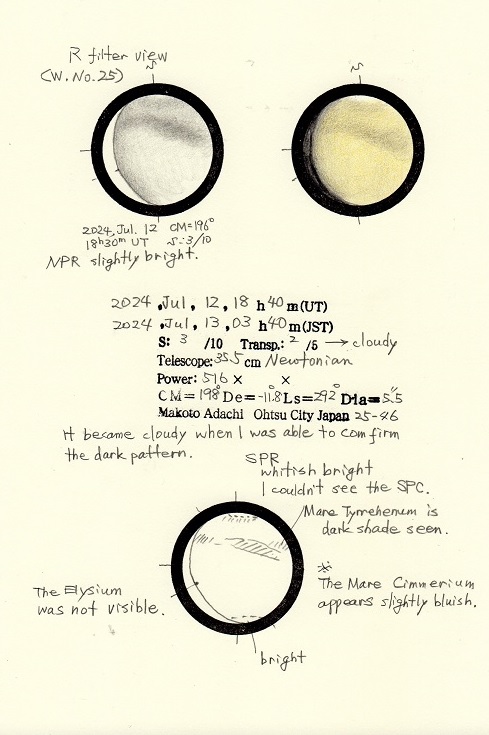 R filter view
(W. No. 25)
S
S
2024, Jul. 12 CM=196°
18h30m UT S=3/10
NPR slightly bright.
2024, Jul, 12, 18 h 40 m (UT)
2024, Jul, 13, 03 h 40 m (JST)
S: 3 /10 Transp.: 2 /5 → cloudy
Telescope: 35.5 cm Newtonian
Power: 516 × ×
CM=198° De=-11.8° Ls=292° Dia=5.5"
Makoto Adachi Ohtsu City Japan 25-46
It became cloudy when I was able to comfirm
the dark pattern.
SPR
whitish bright
I couldn't see the SPC.
Mare Tyrrehenum is
dark shade seen.
※
The Mare Cimmerium
appears slightly bluish.
The Elysium
was not visible.
bright